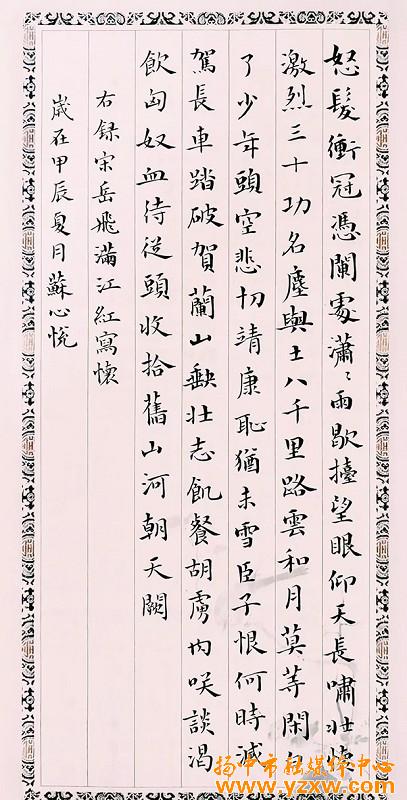 怒髮衝冠憑闌處瀟〻雨歇擡望眼仰天長嘯壯懷
激烈三十功名塵與土八千里路雲和月莫等閑白
了少年頭空悲切靖康恥猶未雪臣子恨何時滅
駕長車踏破賀蘭山缺壯志飢餐胡虜肉咲談渴
飲匈奴血待從頭收拾舊山河朝天闕
右録宋岳飛滿江紅寫懷
歲在甲辰夏月蘇心悅
扬中市融媒体中心
www.yzxw.com